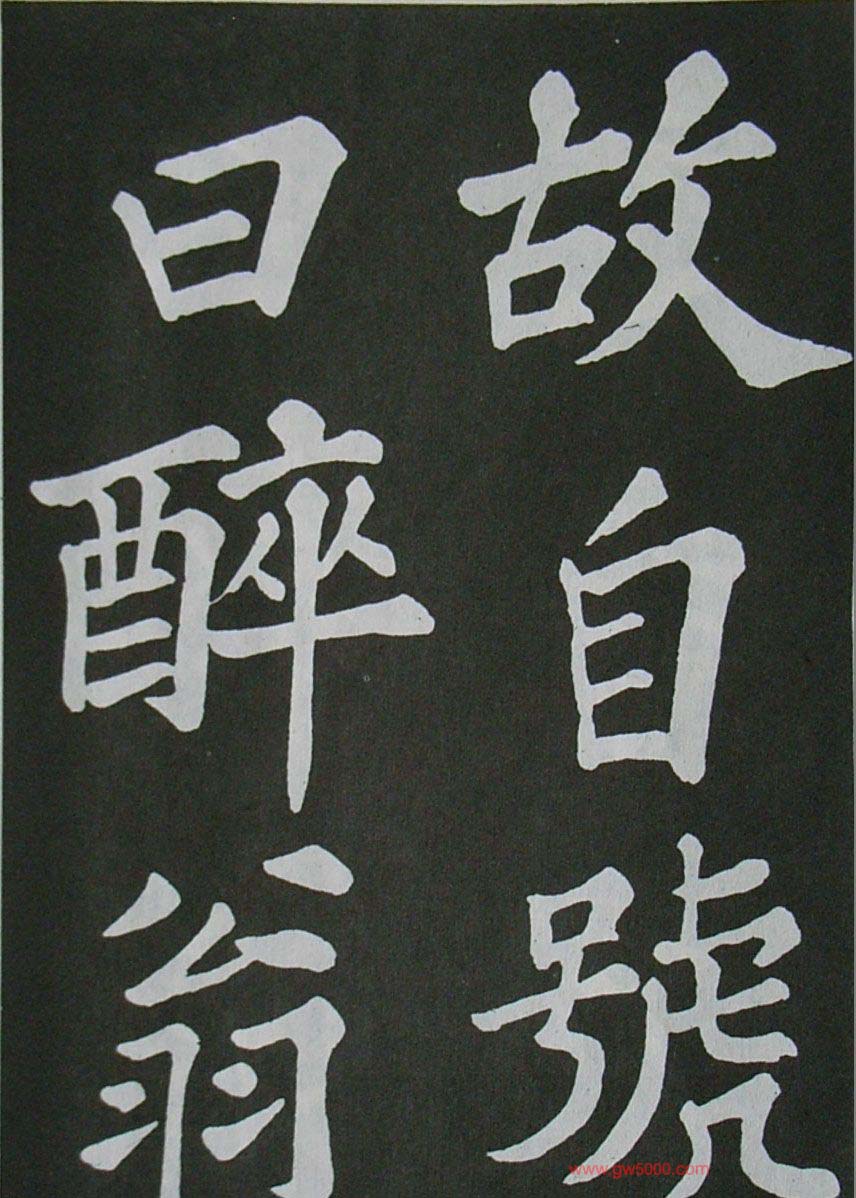 故自號
曰醉翁
www.gw5000.com